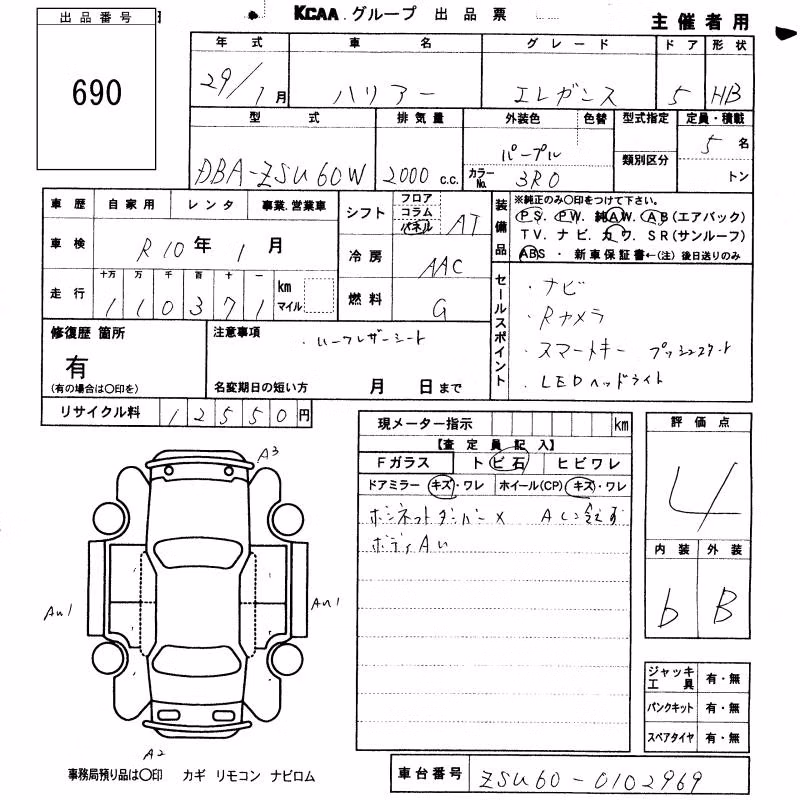 KCAA グループ 出品票
主催者用
出品番号
690
年式 車名 グレード ドア 形状
29/1月 ハリアー エレガンス 5 HB
型式 排気量 外装色 色替 型式指定 定員・積載
DBA-ZSU60W 2000 c.c. パープル 類別区分 5名
カラーNo. 3R0 トン
車歴 自家用 レンタ 事業.営業車
車検 R10年 1月
走行 十万 万 千 百 十 一 km マイル
110371
シフト フロア コラム パネル AT
冷房 AAC
燃料 G
装備品
※純正のみ○印をつけて下さい。
PS. PW. 純AW. AB(エアバック)
TV. ナビ. カワ. SR(サンルーフ)
ABS ・ 新車保証書←(注) 後日送りのみ
セールスポイント
・ナビ
・Rカメラ
・スマートキー プッシュスタート
・LEDヘッドライト
修復歴 箇所
有
(有の場合は○印を)
注意事項
・ハーフレザーシート
名変期日の短い方 月 日まで
リサイクル料 12550円
現メーター指示 km
【査定員記入】
Fガラス トビ石 ヒビワレ
ドアミラー キズ・ワレ ホイール(CP) キズ・ワレ
ボンネットダンパー×
ボディAU
評価点
4
内装 外装
b B
ジャッキ工具 有・無
パンクキット 有・無
スペアタイヤ 有・無
A3
AU1
AU1
A2
事務局預り品は○印 カギ リモコン ナビロム
車台番号 ZSU60-0102969